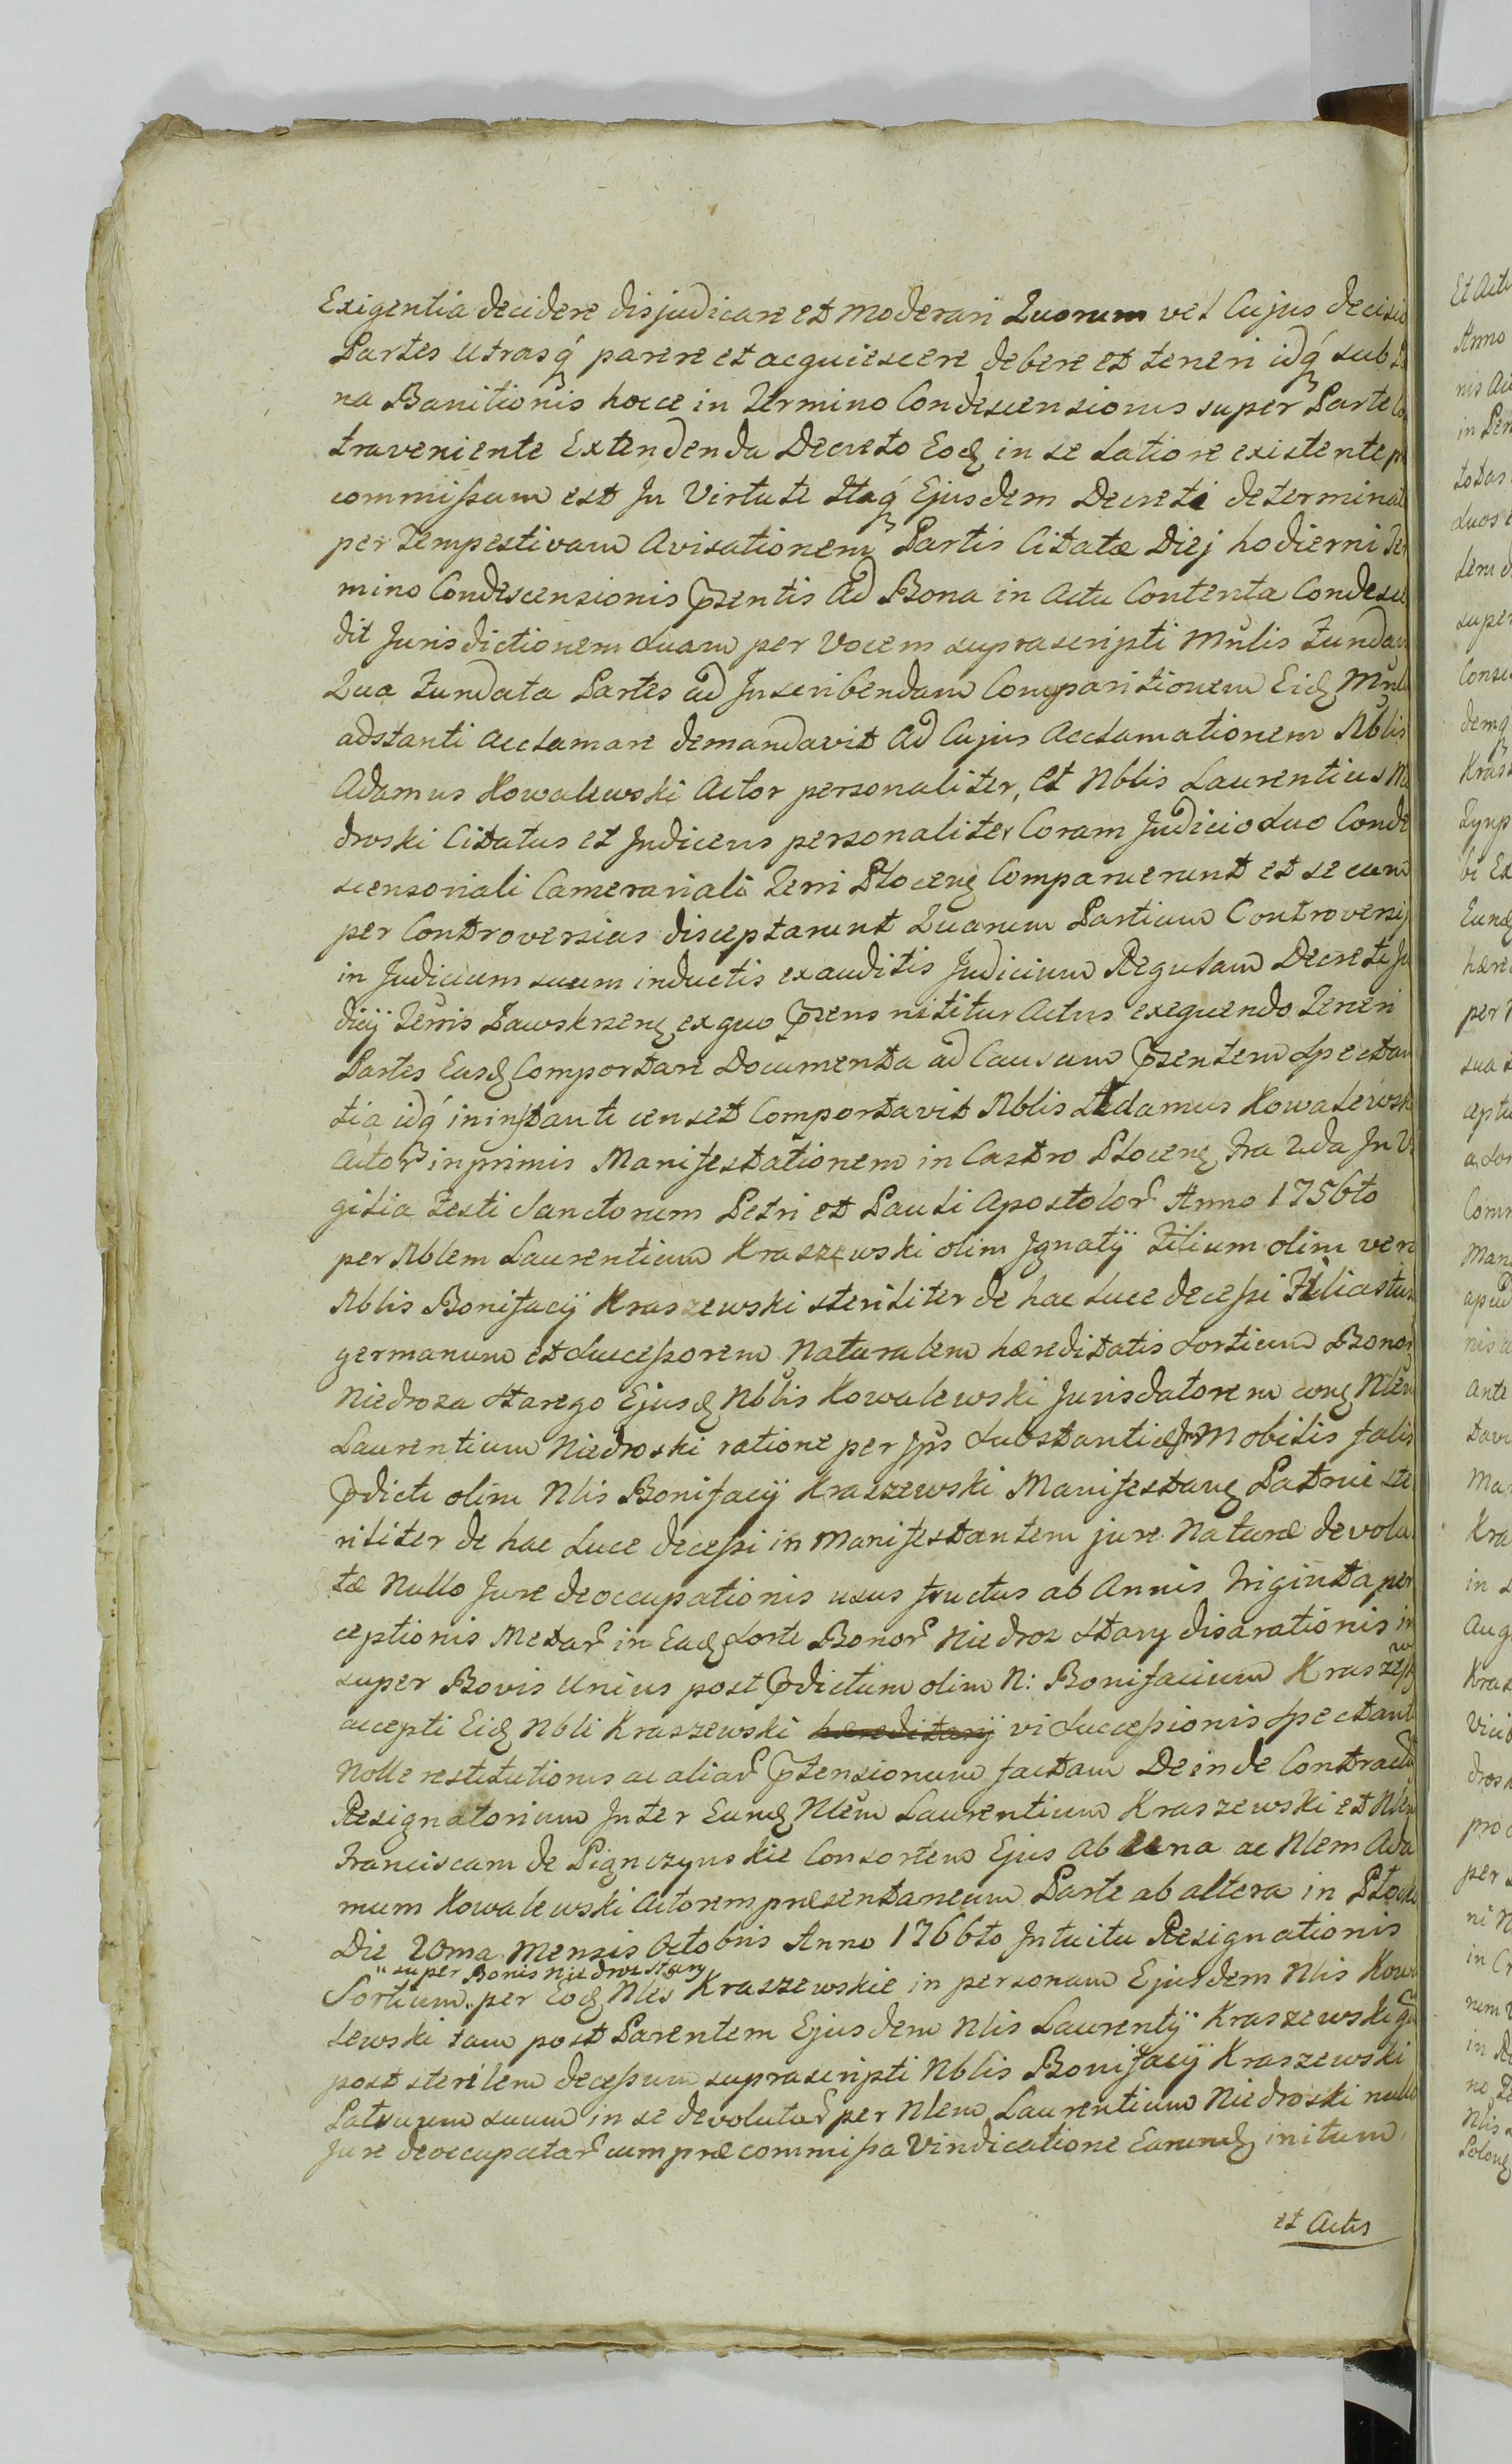 Exigentia decidere disjudicare et moderari Quorum vel Cujus decisio
Partes utrasq́ parere et acquiescere debere et teneri idq́ sub
na Banitionis hocce in Termino Condescensionis super Parte
traveniente Extendenda Decreto Eoḍ in se latiore existente
commissum est In Virtute Itaq́ Ejusdem Decreti determinat
per Tempestivam Avisationem Partis Citatæ Diej hodierni Ter
mino Condescensionis p̄sentis Ad Bona in Actu Contenta Condesce
dit Jurisdictionem suam per Vocem suprascripti Mnlis Fundav
Qua Fundata Partes ad Inscribendam Comparitionem Eiḍ Mnli
adstanti acclamare demandavit Ad Cujus Acclamationem Nblis
Adamus Kowalewski Actor personaliter, et Nblis Laurentius
droski Citatus et Judicens personaliter Coram Judicio suo Conde
scensoriali Camerariali Terri Ploceng Comparuerunt et secum
per Controversias disceptarunt Quarum Partium Controversij
in Judicium suum inductis exauditis Judicium Regulam Decreti Ju
dicij Terris Zawskrzeng ex quo p̄sens nititur Actus exequendo Teneri
Partes Easḍ Comportare Documenta ad Causam p̄sentem specttan
tia idq́ in instanti censet Comportavit Nblis Adamus Kowalewsk
Actor inprimis Manifestationem in Castro Ploceng Fra 2da In Vi
gilia Festi Sanctorum Petri et Pauli Apostolor Anno 1756to
per Nblem Laurentium Kraszewski olim Jgnatij Filium olim vero
Nblis Bonifacij Kraszewski steriliter de hac luce decessi Filiastrum
germanum et Successorem Naturalem hæreditatis Sortium Bonor
Niedroza Starego Ejusḍ Nblis Kowalewski Jurisdatorem cong Nlem
Laurentium Niedroski ratione per Jps Substantiæ Mobilis
p̄dicti olim Nlis Bonifacij Kraszewski Manifestang Patrui ste
riliter de hac Luce decessi in Manifestantem jure Naturæ devolu
tæ Nullo Jure deoccupationis usus fructus ab Annis Triginta per
ceptionis Metar in Eaḍ Sorte Bonor Niedroz Stary disarationis in
super Bovis Unius post p̄dictum olim N: Bonifacium Kraszewsk
accepti Eiḍ Nbli Kraszewski hæreditarij vi Successionis spectant
Nolle restitutionis ac aliar p̄tensionum factam Deinde Contractu
Resignatorium Inter Eunḍ Nlem Laurentium Kraszewski et Nlem
Franciscam de Pignczynskie Consortem Ejus Ab una ac Nlem Ada
mum Kowalewski Actorem præsentaneum Parte ab altera in Plocko
Die 20ma Mensis Octobris Anno 1766to Intuitu Resignationis
" super Bonis Niedroz Stary
Sortium. per Eoḍ Nles Kraszewskie in personam Ejusdem Nlis Kowa
lewski tam post Parentem Ejusdem Nlis Laurentij Kraszewski
post sterilem decessum suprascripti Nblis Bonifacij Kraszewski
Patruum suum in se devolutar per Nlem Laurentium Niedroski nullo
Jure deoccupatar cum præcommissa Vindicatione Earunḍ initum
et Actis